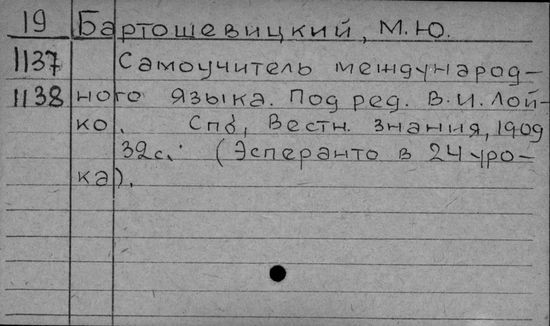 19 Бартошевицкий, М.Ю.
1137 Самоучитель международ-
1138 ного языка. Под ред. В.И.Лой-
ко. Спб, Вестн. знания, 1909
32с. (Эсперанто в 24 уро-
ка).